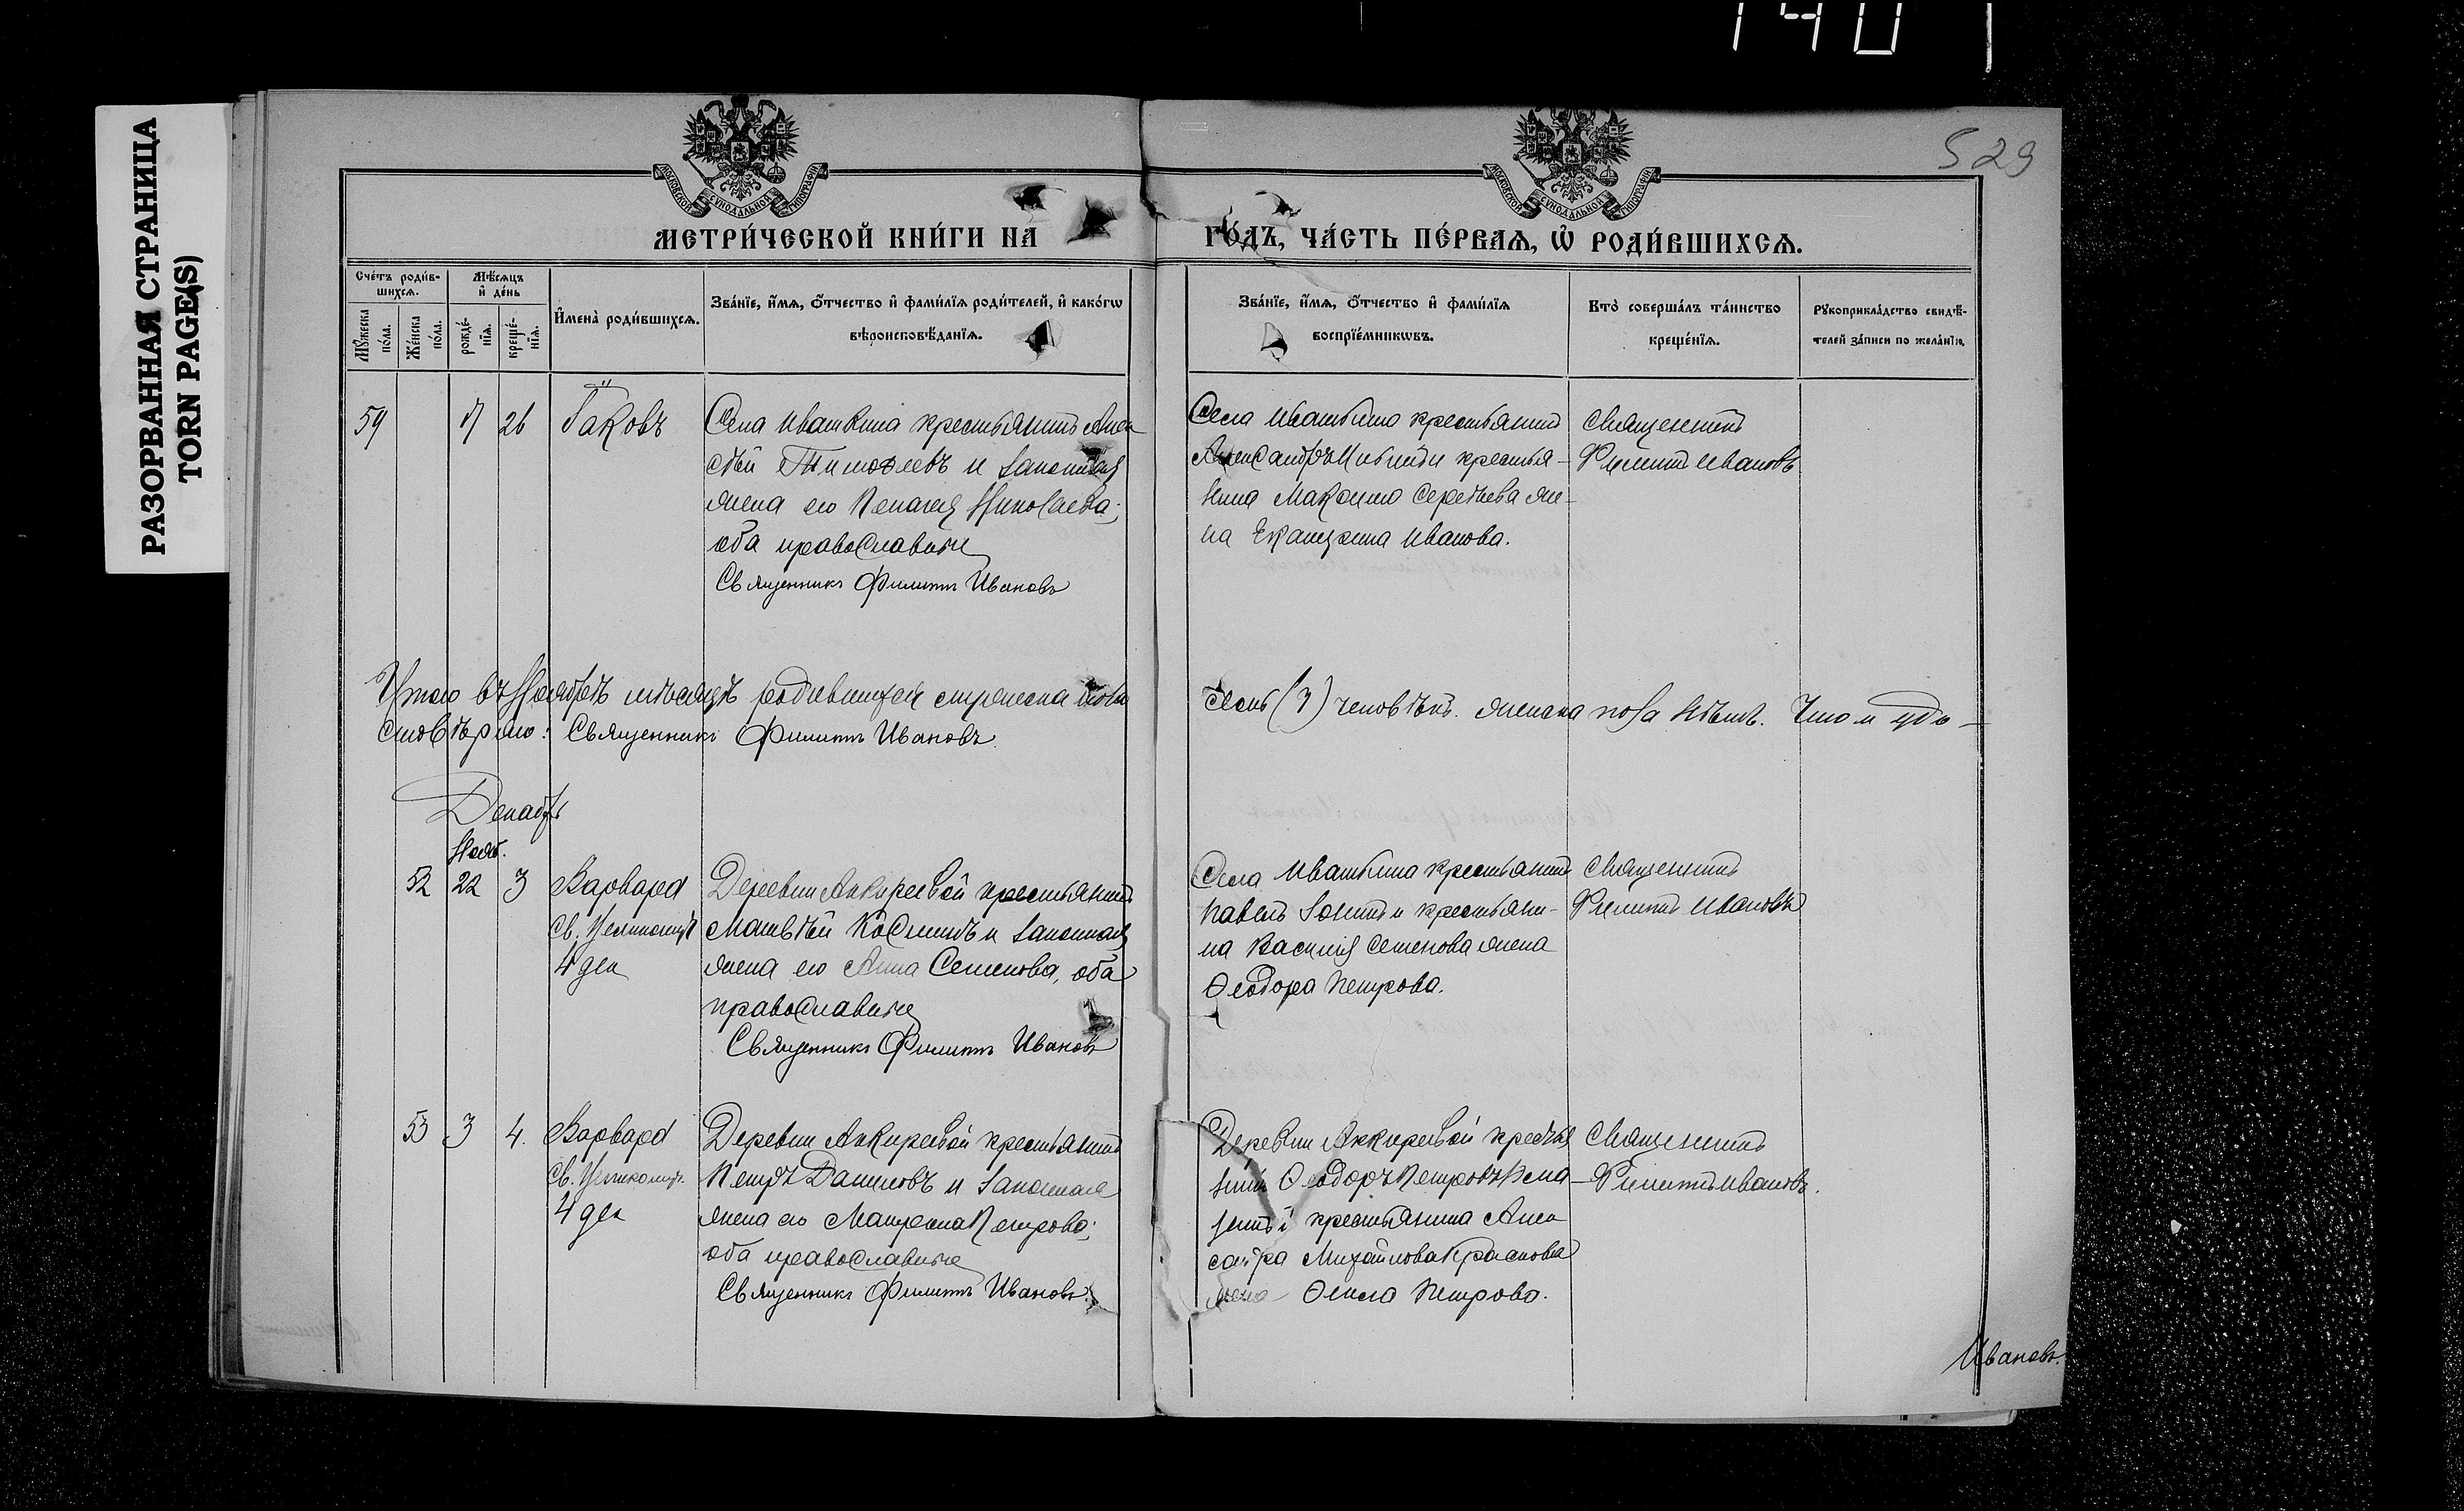 1401
529
РАЗОРВАННАЯ СТРАНИЦА
TORN PAGE(S)
МОСКОВСКОЙ СУНОДАЛЬНОЙ ТИПОГРАФІИ
МОСКОВСКОЙ СУНОДАЛЬНОЙ ТИПОГРАФІИ
МЕТРИ́ЧЕСКОЙ КНИ́ГИ НА
ГО́ДЪ, ЧА́СТЬ ПЕ́РВАѦ, Ѡ҆ РОДИ́ВШИХСѦ.
Сче́тъ роди́вшихсѧ.
Мѣ́сѧцъ и҆ де́нь
Мꙋ́жеска по́ла.
Же́нска по́ла.
рожде́нїѧ.
креще́нїѧ.
И҆мена̀ роди́вшихсѧ.
Зва́нїе, и҆́мѧ, ѻ҆́тчество и҆ фами́лїѧ роди́телей, и҆ како́гѡ
вѣроисповѣ́данїѧ.
Зва́нїе, и҆́мѧ, ѻ҆́тчество и҆ фами́лїѧ
воспрїе́мникѡвъ.
Кто̀ соверша́лъ та́инство
креще́нїѧ.
Рꙋкоприкла́дство свидѣ́-
телей за́писи по жела́нїю.
59 26 Іаковъ
Села Ивашкина крестьянинъ Алек
сѣй Тимофеевъ и законная
жена его Пелагея Николаева;
оба православные
Священникъ Филиппъ Ивановъ
Села Ивашкина крестьянинъ
Александръ и крестья-
нина Максима Сергѣева же-
на Екатерина Иванова.
Священникъ
Филиппъ Ивановъ
Итого въ Ноябрѣ мѣсяцѣ родившихся мужеска пола
семь (7) человѣкъ. женска пола нѣтъ. Что и удо-
стовѣряю: Священникъ Филиппъ Ивановъ.
Декабрь
Нояб.
52 22 3 Варвара
Св. Великомуч.
4 дек
Деревни Анкиреевой крестьянинъ
Матвѣй Косминъ и законная
жена его Анна Семенова, оба
православные
Священникъ Филиппъ Ивановъ
Села Ивашкина крестьянинъ
Павелъ и крестьяни-
на Василія Семенова жена
Ѳеодора Петрова.
Священникъ
Филиппъ Ивановъ
53 3 4. Варвара
Св. Великомуч.
4 дек
Деревни Анкиреевой крестьянинъ
Петръ Даниловъ и законная
жена его Матрена Петрова;
оба православные
Священникъ Филиппъ Ивановъ.
Деревни Анкиреевой крестья
нинъ Ѳеодоръ Петровъ
и крестьянина Алек
сандра Михайлова
жена Петрова.
Священникъ
Филиппъ Ивановъ.
Ивановъ.